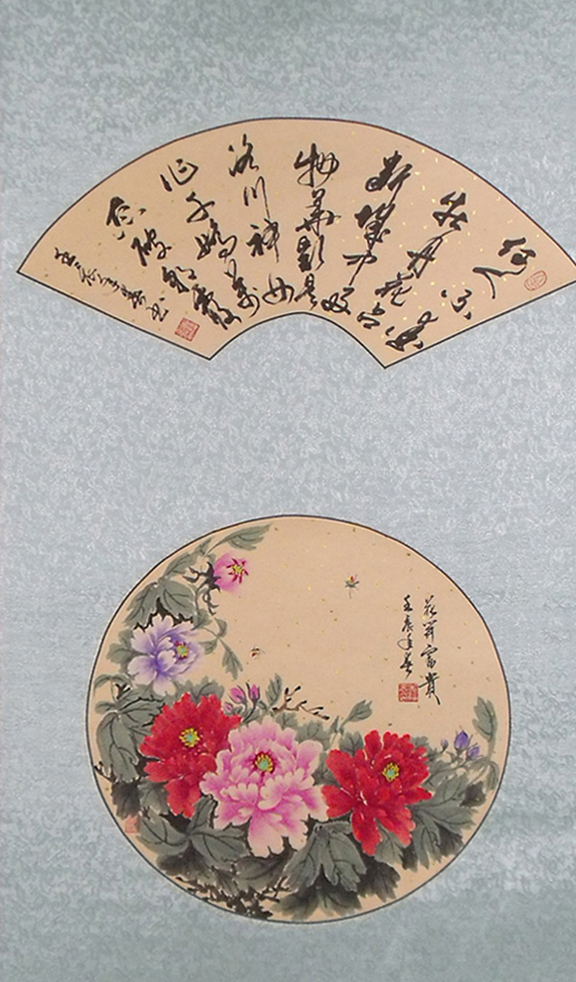 何人不愛
牡丹花占
断城中好
物華疑是
洛川神女
作千嬌萬
态破朝霞
壬辰年春书
花開富貴
壬辰年春